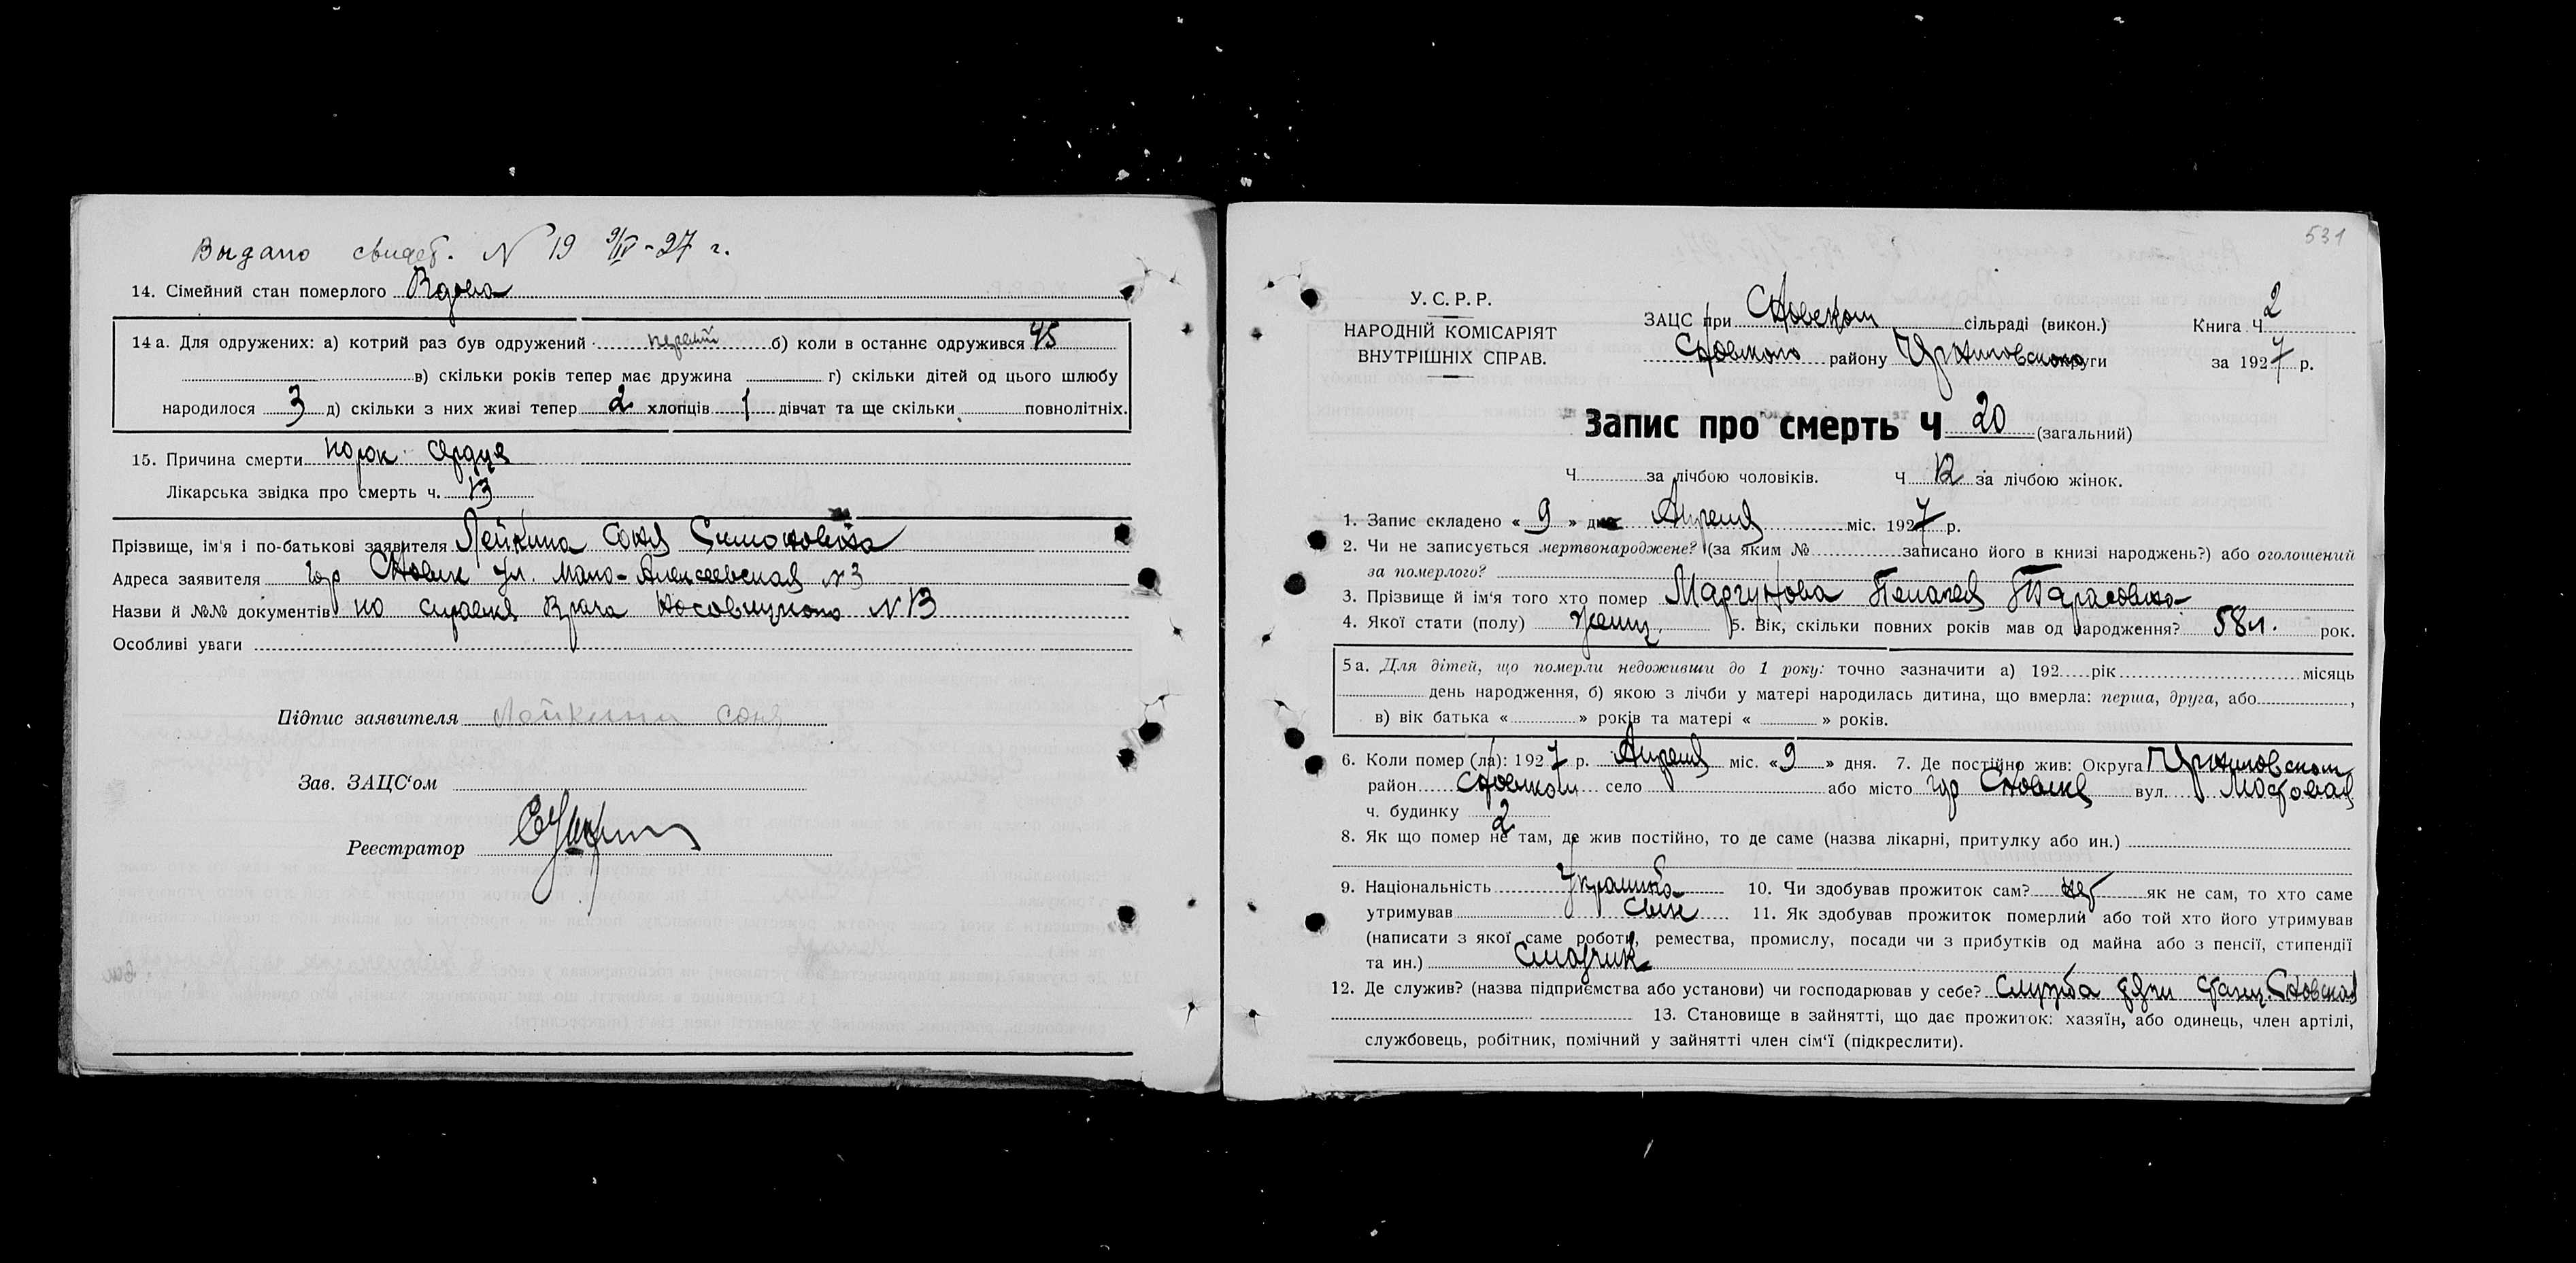 Выдано свидет. N 19 9/IV-27 г.
14. Сімейний стан померлого Вдова
14 а. Для одружених: а) котрий раз був одружений первый б) коли в останнє одружився 45
в) скільки років тепер має дружина г) скільки дітей од цього шлюбу
народилося 3 д) скільки з них живі тепер 2 хлопців 1 дівчат та ще скільки повнолітніх.
15. Причина смерти порок сердца
Лікарська звідка про смерть ч. 13
Прізвище, ім'я і по-батькові заявителя Лейкина Соня
Адреса заявителя гор Сновск ул. Мало-Алексеевская N 3
Назви й №№ документів по справке Врача N 13
Особливі уваги
Підпис заявителя Лейкина Соня
Зав. ЗАЦС'ом
Реєстратор
531
У. С. Р. Р.
НАРОДНІЙ КОМІСАРІЯТ
ВНУТРІШНІХ СПРАВ.
ЗАЦС при Сновском сільраді (викон.)
Сновского району Черниговской округи
Книга Ч. 2
за 1927 р.
Запис про смерть Ч 20 (загальний)
Ч. за лічбою чоловіків. Ч 12 за лічбою жінок.
1. Запис складено « 9 » дня Апреля міс. 1927 р.
2. Чи не записується мертвонароджене? (за яким № записано його в книзі народжень?) або оголошений
за померлого?
3. Прізвище й ім'я того хто помер Маргунова Пелагея Тарасовна
4. Якої стати (полу) женщ. 5. Вік, скільки повних років мав од народження? 58 л. рок.
5 а. Для дітей, що померли недоживши до 1 року: точно зазначити а) 192 рік місяць
день народження, б) якою з лічби у матері народилась дитина, що вмерла: перша, друга, або ,
в) вік батька « » років та матері « » років.
6. Коли помер (ла): 1927 р. Апреля міс. «9» дня. 7. Де постійно жив: Округа Черниговском
район Сновском село або місто гор Сновске вул. Мостовая
ч. будинку 2
8. Як що помер не там, де жив постійно, то де саме (назва лікарні, притулку або ин.)
9. Національність Украинка 10. Чи здобував прожиток сам? нет як не сам, то хто саме
утримував Сын 11. Як здобував прожиток померлий або той хто його утримував
(написати з якої саме роботи, ремества, промислу, посади чи з прибутків од майна або з пенсії, стипендії
та ин.) Смазчик
12. Де служив? (назва підприємства або установи) чи господарював у себе? Служба тяги станц. Сновская
13. Становище в зайнятті, що дає прожиток: хазяїн, або одинець, член артілі,
службовець, робітник, помічний у зайнятті член сім'ї (підкреслити).